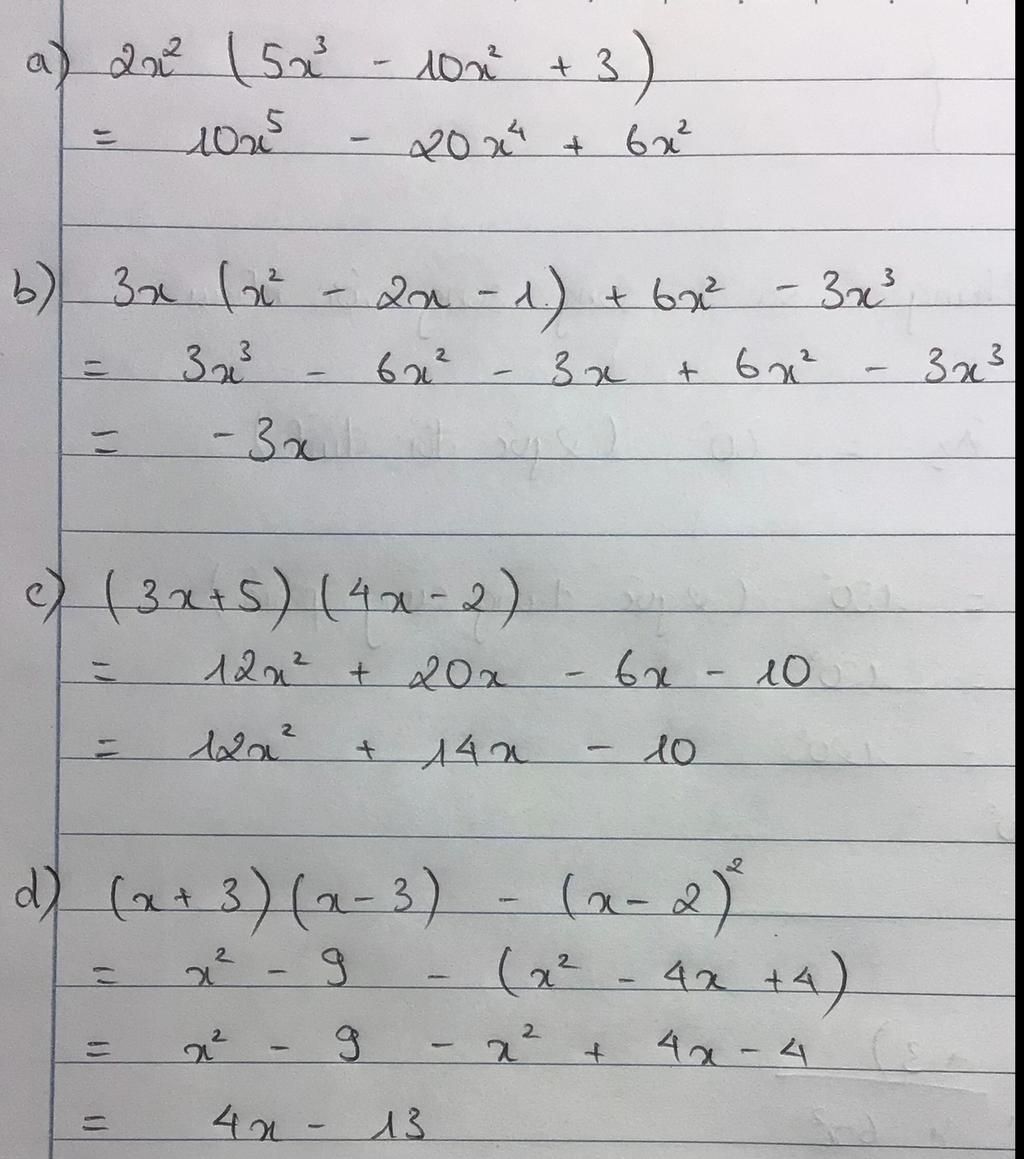 a) 2x² (5x³ - 10x² + 3)
= 10x⁵ - 20x⁴ + 6x²
b) 3x (x² - 2x - 1) + 6x² - 3x³
= 3x³ - 6x² - 3x + 6x² - 3x³
= -3x
c) (3x+5) (4x-2)
= 12x² + 20x - 6x - 10
= 12x² + 14x - 10
d) (x+3)(x-3) - (x-2)²
= x² - 9 - (x² - 4x +4)
= x² - 9 - x² + 4x - 4
= 4x - 13